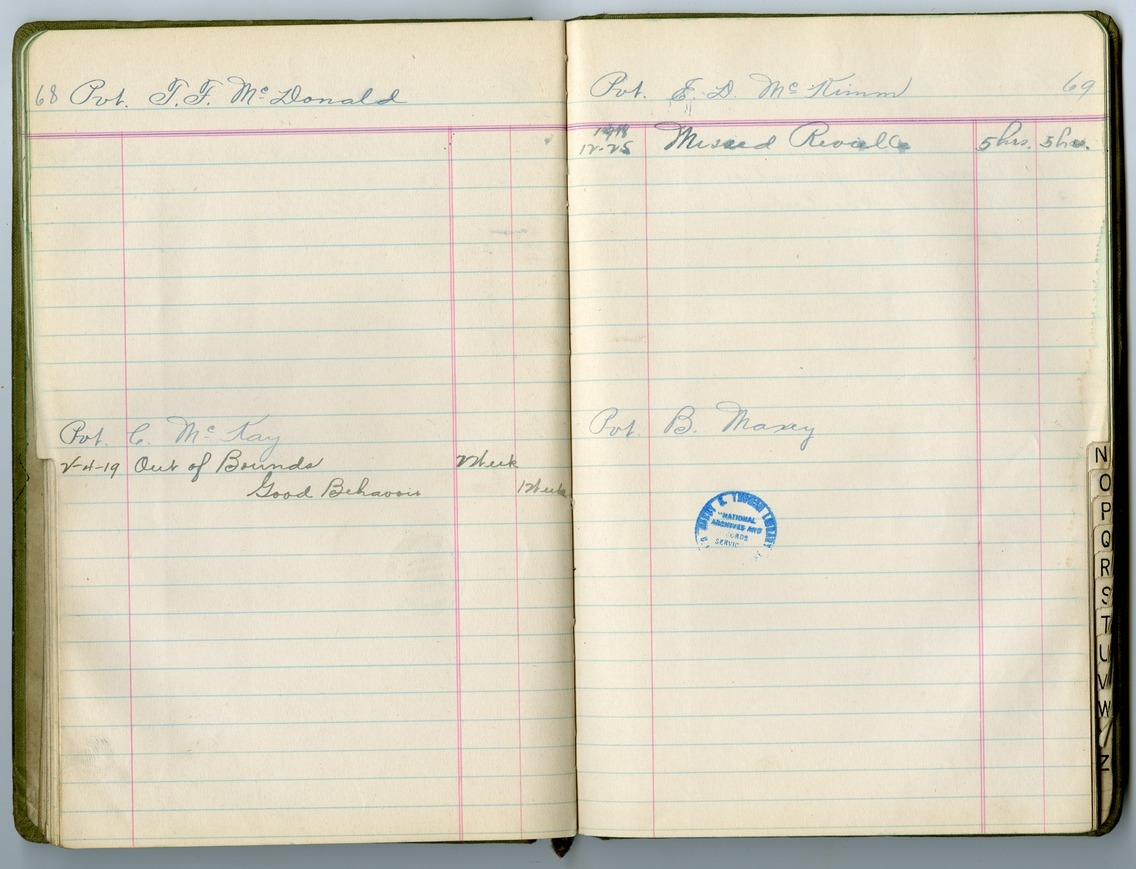 68 Pvt. T. F. McDonald
Pvt. C. McKay
2-4-19 Out of Bounds 2 Week
Good Behavoir 1 Week
Pvt. E. D. McKimm 69
1918
12-25 Missed Revielle 5 hrs. 5 hrs.
Pvt. B. Maxey
HARRY S. TRUMAN LIBRARY
"NATIONAL
ARCHIVES AND
SERVICE
N
O
P
Q
R
S
T
U
V
W
Z